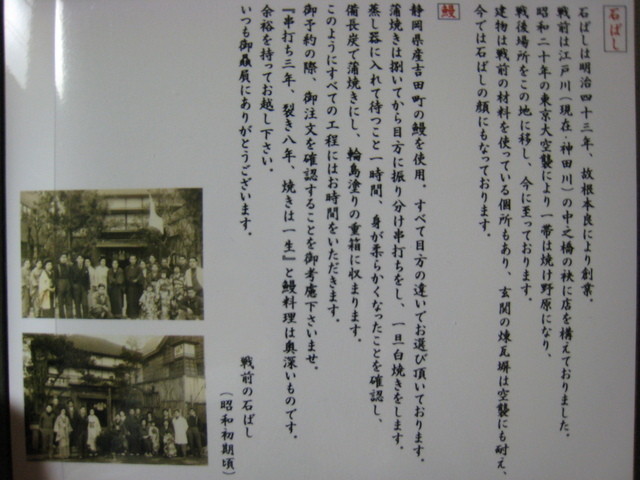 石ばし
石ばしは明治四十三年、故根本良により創業。
戦前は江戸川(現在・神田川)の中之橋の袂に店を構えておりました。
昭和二十年の東京大空襲により一帯は焼け野原になり、
戦後場所をこの地に移し、今に至っております。
建物は戦前の材料を使っている個所もあり、玄関の煉瓦塀は空襲にも耐え、
今では石ばしの顔にもなっております。
鰻
静岡県産吉田町の鰻を使用。すべて目方の違いでお選び頂いております。
蒲焼きは捌いてから目方に振り分け串打ちをし、一旦白焼きをします。
蒸し器に入れて待つこと一時間、身が柔らかくなったことを確認し、
備長炭で蒲焼きにし、輪島塗りの重箱に収まります。
このようにすべての工程にはお時間をいただきます。
御予約の際、御注文を確認することを御考慮下さいませ。
『串打ち三年、裂き八年、焼きは一生』と鰻料理は奥深いものです。
余裕を持ってお越し下さい。
いつも御贔屓にありがとうございます。
戦前の石ばし
(昭和初期頃)